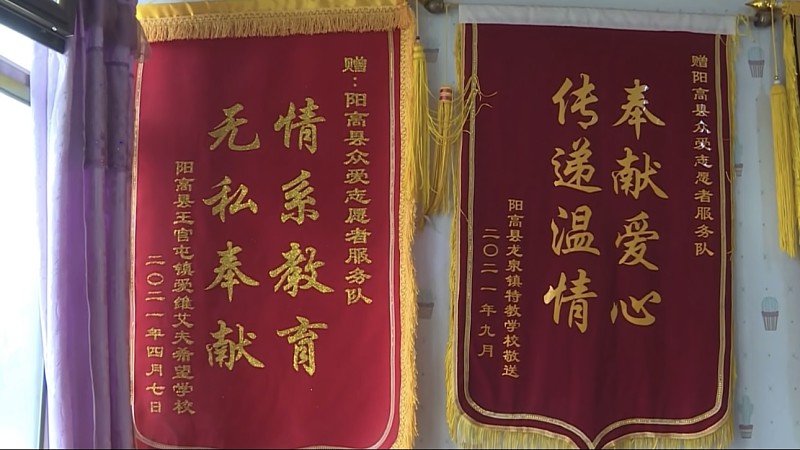 赠：阳高县众爱志愿者服务队
情系教育
无私奉献
阳高县王官屯镇爱维艾夫希望学校
二〇二一年四月七日
赠阳高县众爱志愿者服务队
奉献爱心
传递温情
阳高县龙泉镇特教学校敬送
二〇二一年九月